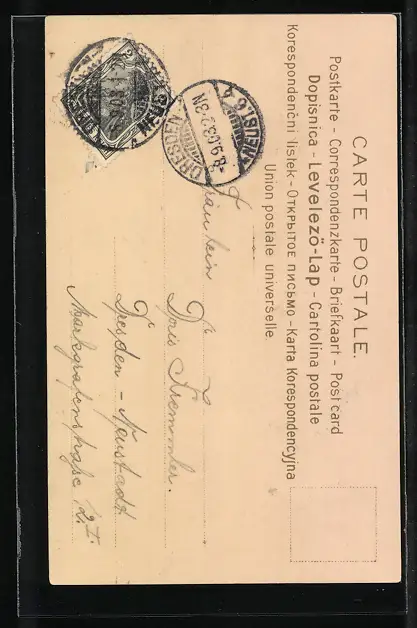 CARTE POSTALE.
Postkarte - Correspondenzkarte - Briefkaart - Post card
Dopisnica - Levelező-Lap - Cartolina postale
Korespondenční lístek - Открытое письмо - Karta Korespondencyjna
Union postale universelle
DRESDEN
8.9.03.2-3N
NEUST.6.
Fräulein
Doris Tremmler.
Dresden - Neustadt
Markgrafenstraße 12 I.